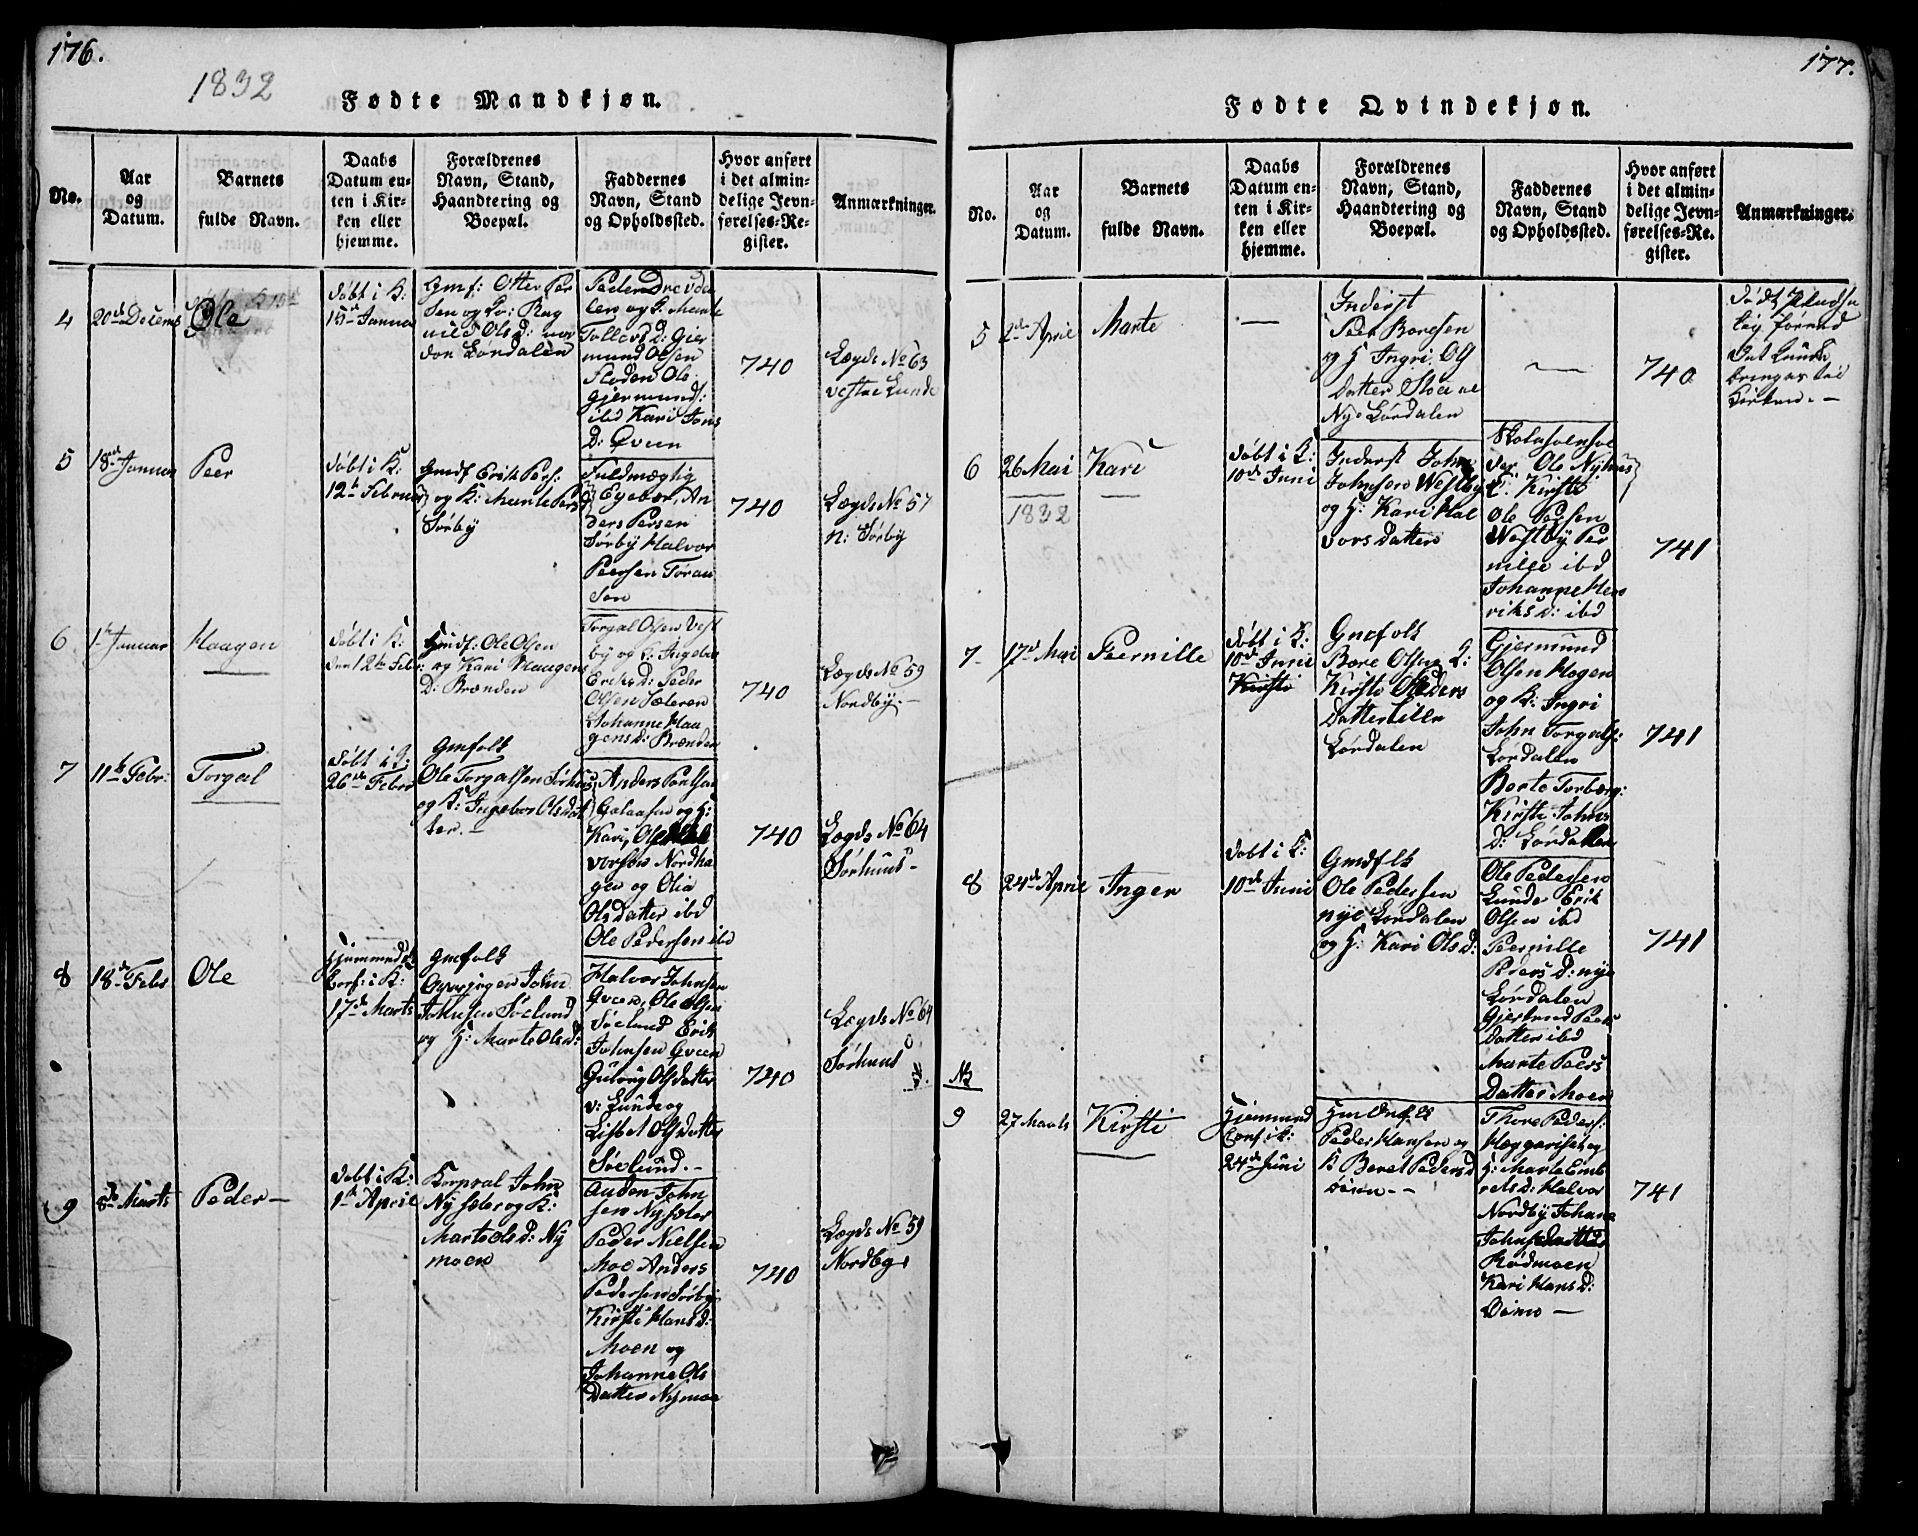 176.
1832
Fødte Mandkjøn.
No.
Aar
og
Datum.
Barnets
fulde Navn.
Daabs
Datum en-
ten i Kir-
ken eller
hjemme.
Forældrenes
Navn, Stand,
Haandtering og
Boepæl.
Faddernes
Navn, Stand
og Opholdssted.
Hvor anført
i det almin-
delige Jevn-
førelses-Re-
gister.
Anmærkninger.
4
20de Decemb
Ole
døbt i K:
15de Januar
Gmf: Otter Per
sen og Ko: Rag
nild Olsd: nor
dre Lordalen
Peder
len og K: Marte
Tollevs D: Gjer
mund Olsen
Floden Ole
Gjermunds:
ibd Kari Jons
D: Qveen
740
Lægds No 63
vestre Lunde
5
18de Januar
Peer
døbt i K:
12te Februar
Gmdf Erik Pers:
og K: Marte Persd
Sørby
Fuldmægtig
Egeber, An
ders Persen
Sørby Halvor
Peersen Toran
Son
740
Lægds No 57
n: Sørby
6
1te Januar
Haagen
døbt i K:
den 12te Febr:
Gmdf: Ole Olsen
og Kari Haagens
D: Brænden
Torgal Olsen Vest
by og K: Ingebor
Eriks D: Peder
Olsen Sæteren
Johanne Haa
gens D: Brænden
740
Lægds No 59
Nordby.-
7
11te Febr:
Torgal
døbt i K:
26de Febr
Gmfolk
Ole Torgalsen Sørhuus
og K: Ingebor Olsdat
ter. -
Anders Poulsen
Galaasen og H:
Kari, Ole
vorsen Nordha
gen og Olia
Olsdatter ibd
Ole Pedersen ibd
740
Lægds No 64
Sørhuus-
8
18de Febr
Ole
Hjemmedøbt
Conf: i K:
17de Marts
Gmfolk
John
Johnsen Søelund
og H: Marte Olsd:
Halvor Johnsen
Qveen, Ole Olsen
Søelund Erik
Johnsen Qveen
Gulaug Olsdatter
v: Lunde og
Lisbet Olsdatter
Søelund.-
740
Lægds No 64
Sørhuus
9
8de Marts
Peder-
døbt i K:
1te April
Korpral John
Nysæter og K:
Marte Ols d: Ny
moen
Auden John
sen Nysæter
Peder Nielsen
Moe Anders
Pedersen Sørby
Kirsti Hansd:
Moen og
Johanne Ols
Datter Nymoe
740
Lægds No 59
Nordby
177.
Fødte Qvindekjøn.
No.
Aar
og
Datum.
Barnets
fulde Navn.
Daabs
Datum en-
ten i Kir-
ken eller
hjemme.
Forældrenes
Navn, Stand,
Haandtering og
Boepæl.
Faddernes
Navn, Stand
og Opholdssted.
Hvor anført
i det almin-
delige Jevn-
førelses-Re-
gister.
Anmærkninger.
5
April
Marte
—
Inderst
Peer Boresen
og H Ingri Ols
Datter
Nye Lørdalen
—
740
død
førend
Det kunde
bringes til
Kirken.-
6
26 Mai
1832
Kari
døbt i K:
10de Juni
Inderst John
Johnsen Westby
og H: Kari Hal
vorsdatter
Ole Nyhuus
K: Kirsti
Ole Persen
Westby Per
nille ibd
Johanne Hen
riks D: ibd
741
7
17de Mai
Peernille
døbt i K:
10de Juni
Kirsti
Gmfolk
Bore Olsen K:
Kirsti Peders
Datter Lille
Lørdalen
Gjermund
Olsen Hogen
og K: Ingri
John Torgals:
Lordalen
Berte Torberg:
Kirsti Johns
D: Lørdalen
741
8
24de April
Inger
døbt i K:
10de Juni
Gmdfolk
Ole Pedersen
nye Lordalen
og H: Kari Ols d:
Ole Pedersen
Lunde Erik
Olsen ibd
Peernille
Peders D: nye
Lordalen
Gjertrud Peers
datter ibd
Marte Peers
Datter Moen
741
NB
9
27 Marts
Kirsti
Hjemmed
Conf i K:
24de Juni
Peder Hansen og
K Beret Pedersd
Thore Peders:
Heggeriset og
H: Marte Emb
rets d: Halvor
Nordby Johane
Johnsdatter
Rødmoen
Kari Hans d:
741